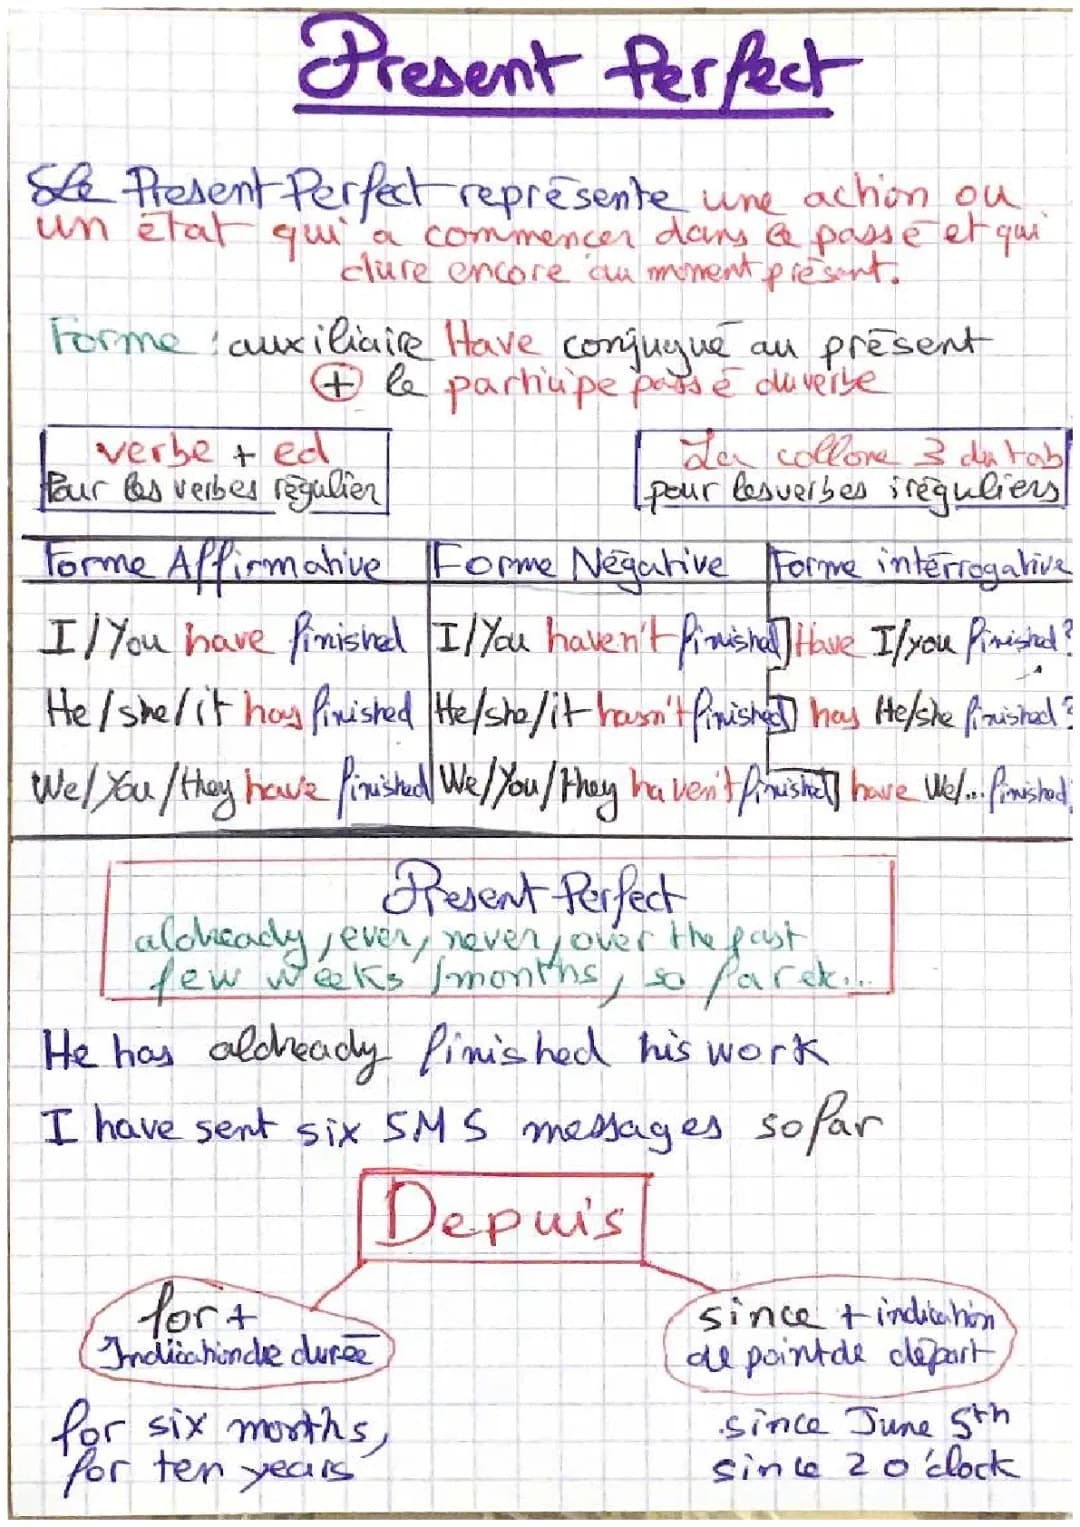 Present Perfect
Le Present Perfect représente une action ou
un état qui a commencer dans le passé et qui
dure encore au moment présent.
Forme : auxiliaire Have conjugué au présent
+ le participe passé du verbe
verbe + ed
Pour les verbes régulier
La collone 3 du tab
pour les verbes iréguliers
Forme Affirmative Forme Négative Forme intérrogative
I/You have finished I/You haven't finished Have I/you finished?
He/she/it has finished He/she/it hasn't finished has He/she finished?
We/You/they have finished We/You/they haven't finished have We/... finished
Present Perfect
aldready, ever, never, over the past
few weeks/months, so far etc...
He has aldready finished his work
I have sent six SMS messages so far
Depuis
for +
Indication de durée
since + indication
de point de départ
for six months,
for ten years
since June 5th
since 2 o'clock